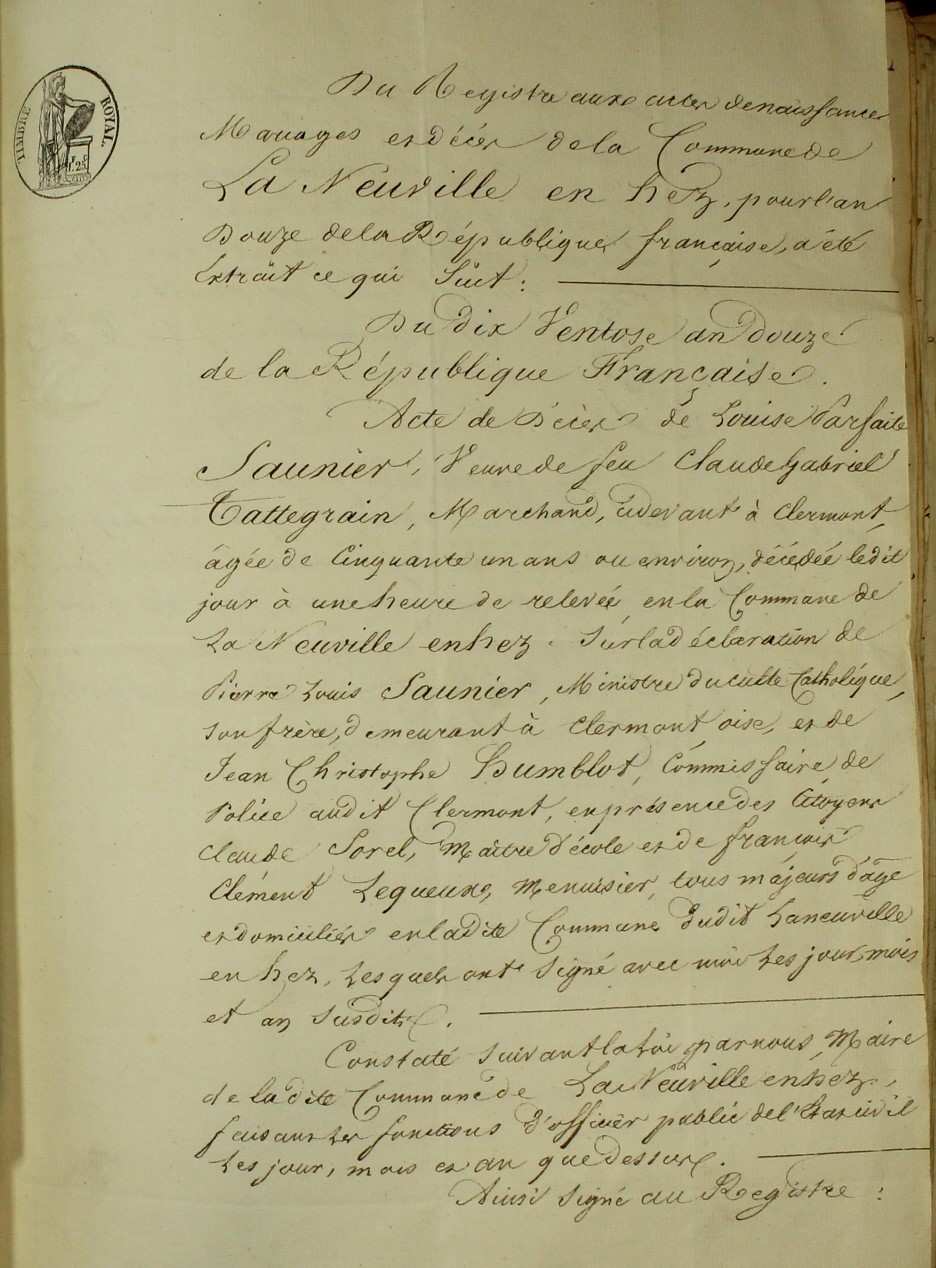 TIMBRE ROYAL
1f. 25c
Du Registre aux actes de naissances
Mariages et décès de la Commune de
La Neuville en hez, pour l'an
Douze de la République française, a été
Extrait ce qui Suit :
Du dix Ventose an douze
de la République Française.
Acte de Décès de Louise Parfaite
Saunier, Veuve de feu Claude Gabriel
Tattegrain, Marchand, cidevant à Clermont,
âgée de Cinquante un ans ou environ, décédée ledit
jour à une heure de relevée en la Commune de
La Neuville en hez. Sur la déclaration de
Pierre Louis Saunier, Ministre du culte Catholique,
son frère, demeurant à Clermont oise, et de
Jean Christophe Humblot, Commissaire de
Police audit Clermont, en présence des Citoyens
Claude Sorel, Maître d'école et de françois
Clément Lequeux, Menuisier, tous majeurs d'age
et domiciliés en ladite Commune dudit Laneuville
en hez, Lesquels ont Signé avec moi Les jour, mois
et an Susdits.
Constaté Suivant la Loi par nous, Maire
de ladite Commune de La Neuville en hez,
faisant Les fonctions d'officier public de l'Etat civil
Les jour, mois et an que dessus.
Ainsi Signé au Registre :